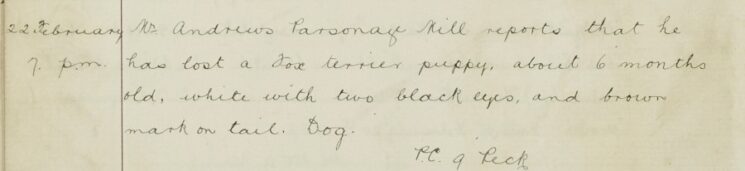 22 February Mr. Andrews Parsonage Mill reports that he
7. p.m. has lost a Fox terrier puppy, about 6 months
old, white with two black eyes, and brown
mark on tail. Dog.
P.C. 9 Peck